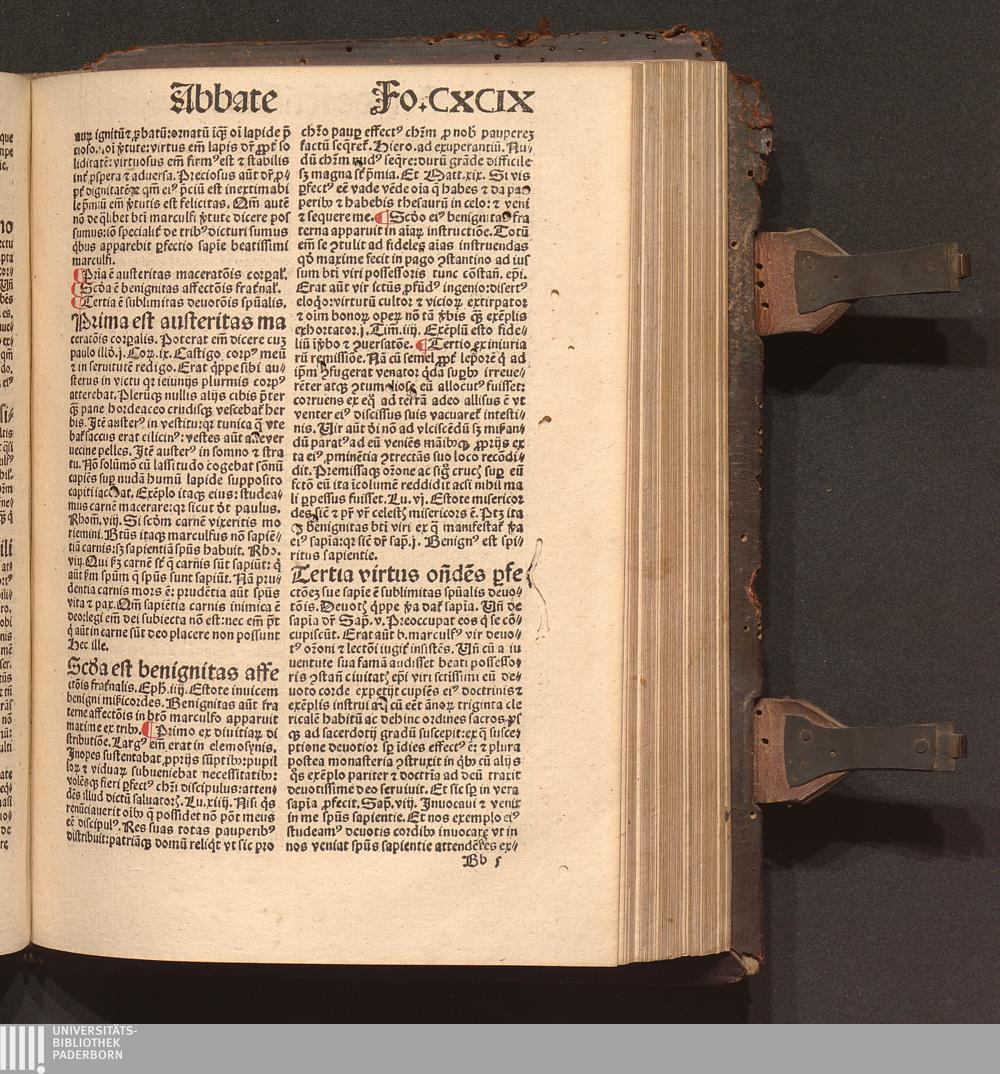 Abbate Fo.CXCIX
aurꝫ ignitū ⁊ ꝓbatū: oꝛnatū iqꝫ oi lapide p̄
cioso. oi v̄tute: virtus em̄ lapis dꝛ ꝓpt̄ so
liditatē: virtuosus em̄ firmꝰ est ⁊ stabilis
int̄ ꝓspera ⁊ aduersa. Preciosus aūt dꝛ ꝓ⸗
pt̄ dignitatē: qꝛ qm̄ eiꝰ p̄ciū est inextimabi
le p̄miū em̄ v̄tutis est felicitas. Qm̄ autē
nō de qͣlibet btī marculfi v̄tute dicere pos
sumus: iō specialit̄ de tribꝰ dicturi sumus
q̇bus apparebit ꝑfectio sapiē beatissimi
marculfi.
¶ Pria ē austeritas maceratōis corꝑal̄.
¶ Scd̄a ē benignitas affectōis frat̄nal̄.
¶ Tertia ē sublimitas deuotōis spūalis.
Prima est austeritas ma
ceratōis corꝑalis. Poterat em̄ dicere cuꝫ
paulo illō. j. Coꝝ. ix. Castigo corpꝰ meū
⁊ in seruitutē redigo. Erat q̇ppe sibi au⸗
sterus in victu qꝛ ieiunijs plurimis corpꝰ
atterebat. Plerūqꝫ nullis alijs cibis p̄ter
qͣꝫ pane hordeaceo crudisqꝫ vescebat̄ her
bis. Itē austerꝰ in vestitu: qꝛ tunica qͣ vte
bat̄ saccus erat cilicinꝰ: vestes aūt
uecine pelles. Itē austerꝰ in somno ⁊ stra
tu. Nō solūmō cū lassitudo cogebat sōnū
capiēs sup nudā humū lapide supposito
capiti iacebat. Exēplo itaqꝫ eius: studea⸗
mus carnē macerare: qꝛ sicut dt̄ paulus.
Rhom̄. viij. Si scd̄m carnē vixeritis mo
riemini. Btūs itaqꝫ marculfus nō sapiē⸗
tiā carnis: sꝫ sapientiā spūs habuit. Rho.
viij. Qui scꝫ carnē st̄ q̄ carnis sūt sapiūt: q̇
aūt scd̄m spūm q̄ spūs sunt sapiūt. Nā pru⸗
dentia carnis mors ē: prudētia aūt spūs
vita ⁊ pax. Qm̄ sapiētia carnis inimica ē
deo: legi em̄ dei subiecta nō est: nec em̄ pōt
q̇ aūt in carne sūt deo placere non possunt
Hec ille.
Scd̄a est benignitas affe
ctōis frat̄nalis. Eph̄. iiij. Estote inuicem
benigni misc̄dicordes. Benignitas aūt fra
terne affectōis in btō marculfo apparuit
maxime ex tribꝰ. ¶ Primo ex diuitiaꝝ di
stributiōe. Largꝰ em̄ erat in elemosynis.
Inopes sustentabat ꝓprijs sūptibꝰ: pupil
loꝝ ⁊ viduaꝝ subueniebat necessitatibꝰ:
volēsqꝫ fieri ꝑfectꝰ chr̄i discipulus: atten⸗
dēs illud dictū saluatorꝭ. Lu. xiiij. Nisi q̇s
renūciauerit oībꝰ q̄ possidet nō pōt meus
eē discipulꝰ. Res suas totas pauperibꝰ
distribuit: patriāqꝫ domū reliq̇t vt sic pro
chr̄o paup effectꝰ chr̄m ꝓ nob̄ paupereꝫ
factū seq̄ret̄. Hiero. ad exuperantiū. Nu⸗
dū chr̄m nudꝰ seq̄re: durū grāde difficile
sꝫ magna st̄ p̄mia. Et Matt. xix. Si vis
ꝑfectꝰ eē vade vēde oīa q̄ habes ⁊ da pau
peribꝰ ⁊ habebis thesaurū in celo: ⁊ veni
⁊ sequere me. ¶ Scd̄o eiꝰ benignitas fra
terna apparuit in aīaꝝ instructiōe. Totū
em̄ se ꝯtulit ad fideles aīas instruendas
qd̄ maxime fecit in pago ꝯstantino ad ius
sum bti viri possessoris tunc cōstan̄. ep̄i.
Erat aūt vir sctūs ꝓfūdꝰ ingenio: disertꝰ
eloq̇o: virtutū cultor ⁊ vicioꝝ extirpator
⁊ oīm bonoꝝ opeꝝ nō tā v̄bis qͣꝫ exēplis
exhortator. j. Tim̄. iiij. Exēplū esto fide⸗
liū i v̄bo ⁊ ꝯuersatōe. ¶ Tertio ex iniuria
rū remissiōe. Nā cū semel ꝓpt̄ leporē q̇ ad
ip̄m ꝯfugerat venator q̇dā supbꝰ irreue⸗
rēter atqꝫ ꝯtumeliose eū allocutꝰ fuisset:
corruens ex eq̄ ad terrā adeo allisus ē vt
venter eiꝰ discissus suis vacuaret̄ intesti⸗
nis. Vir aūt dī nō ad vlciscēdū sꝫ mis̄ran⸗
dū paratꝰ ad eū veniēs māibqꝫ ꝓprijs ex
ta eiꝰ ꝓminētia ꝯtrectās suo loco recōdi⸗
dit. Premissaqꝫ orōne ac sig̈ crucꝭ sup eū
fctō eū ita īcolumē reddidit acsi nihil ma
li ꝑpessus fuisset. Lu. vj. Estote misericor
des sic̄ ⁊ pr̄ vr̄ celestꝭ misericors ē. Ptꝫ ita
qꝫ benignitas bti viri ex q̄ manifestat̄ v̄a
eiꝰ sapīa: qꝛ sic̄ dr̄ sap̄. j. Benignꝰ est spi⸗
ritus sapientie.
Tertia virtus oñdēs ꝑfe
ctōeꝫ sue sapie ē sublimitas spūalis deuo⸗
tōis. Deuotꝭ q̇ppe v̄a dat̄ sapīa. Un̄ de
sapīa dr̄ Sap̄. v. Preoccupat eos q̇ se cō⸗
cupiscūt. Erat aūt b. marculfꝰ vir deuo⸗
tꝰ orōni ⁊ lectōi iugit̄ insistēs. Un̄ cū a iu
uentute sua famā audisset beati possesso⸗
ris ꝯstan̄ ciuitatꝭ ep̄i viri sctissimi eū de⸗
uoto corde expetijt cupiēs eiꝰ doctrinis ⁊
exēplis instrui ac cū eēt ānoꝝ triginta cle
ricalē habitū ac dehinc ordines sacros vs
qꝫ ad sacerdotij gradū suscepit: ex q̄ suscē
ptione deuotior sp̄ idies effectꝰ ē: ⁊ plura
postea monasteria ꝯstruxit in q̇bꝰ cū alijs
q̇s exēplo pariter ⁊ doctrīa ad deū traxit
deuotissime deo seruiuit. Et sic sp̄ in vera
sapīa ꝓfecit. Sap̄. viij. Inuocaui ⁊ venit
in me spūs sapientie. Et nos exemplo eiꝰ
studeamꝰ deuotis cordibꝰ inuocare vt in
nos veniat spūs sapientie attendētes ex⸗
Bb ſ
UNIVERSITÄTS-
BIBLIOTHEK
PADERBORN